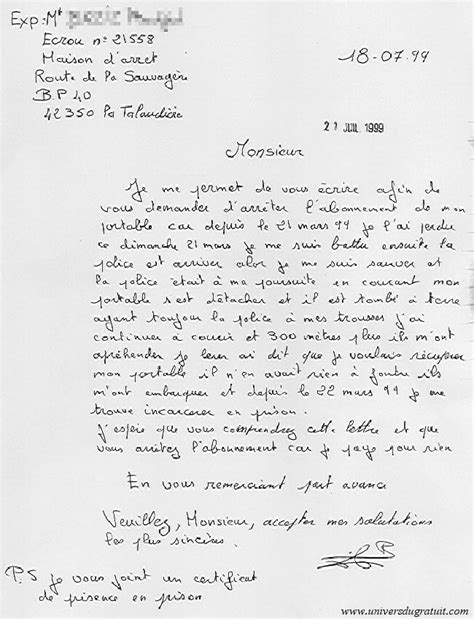 Exp: Mr
Ecrou n° 21558
Maison d'arret
Route de la Sauvagère
B.P 40
42350 la Talaudière
18-07.99
21 JUIL 1999
Monsieur
Je me permet de vous écrire afin de
vous demander d'arrèter l'abonnement de mon
portable car depuis le 21 mars 99 je l'ai perdu
ce dimanche 21 mars je me suis battu ensuite la
police est arriver alor je me suis sauver et
la police était à ma poursuite en courant mon
portable s'est détacher et il est tombé à terre
ayant toujour la police à mes trousses j'ai
continuer à courir et 300 mètres plus ils m'ont
apréhender je leur ai dit que je voulais récuperer
mon portable il n'en avait rien à foutre ils
m'ont embarquer et depuis le 22 mars 99 je me
trouve incarcerer en prison.
J'espère que vous comprendrez cette lettre et que
vous arrètez l'abonnement car je paye pour rien
En vous remerciant part avance
Veuillez, Monsieur, accepter mes salutations
les plus sincères.
P.S je vous joint un certificat
de présence en prison
www.universdugratuit.com